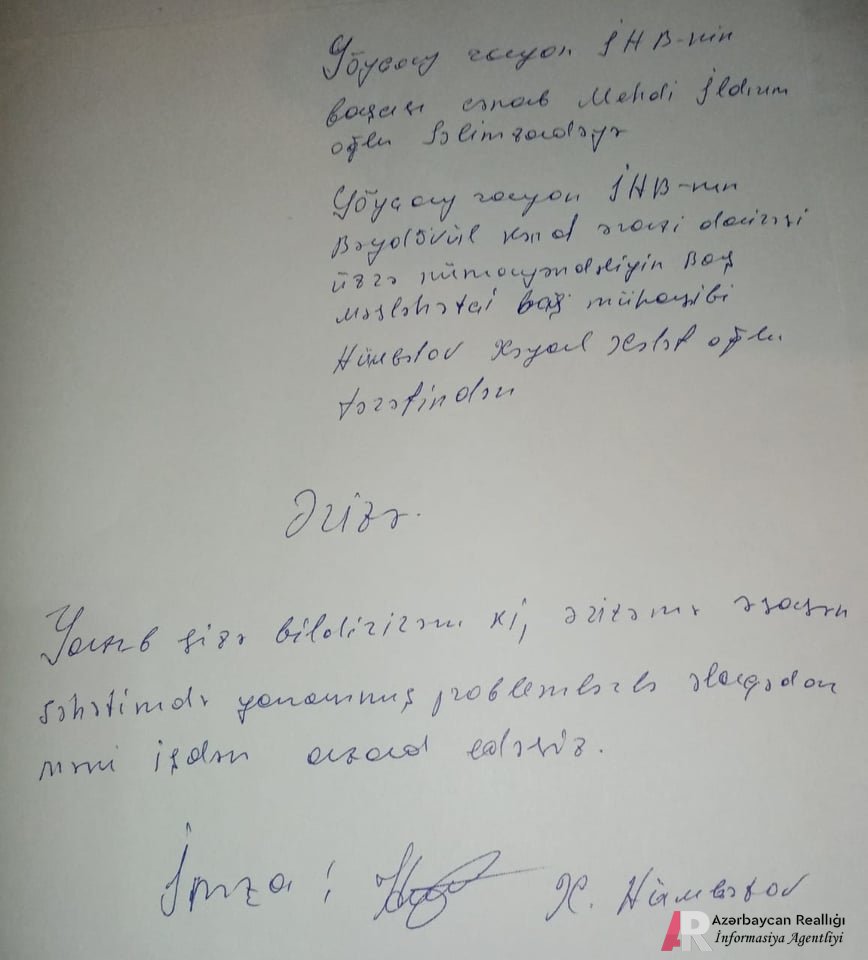 Göyçay rayon İHB-nin
başçısı cənab Mehdi İldırım
oğlu Səlimzadəyə
Göyçay rayon İHB-nın
Bəydövül kənd ərazi dairəsi
üzrə nümayəndəliyin Baş
məsləhətçi baş mühasibi
Hümbətov Xəyal
oğlu
tərəfindən
Ərizə.
Yazıb sizə bildirirəm ki, ərizəmə əsasən
səhətimdə yaranmış problemlərlə əlaqədar
məni işdən azad edəsiz.
İmza: X. Hümbətov
AR Azərbaycan Reallığı
İnformasiya Agentliyi